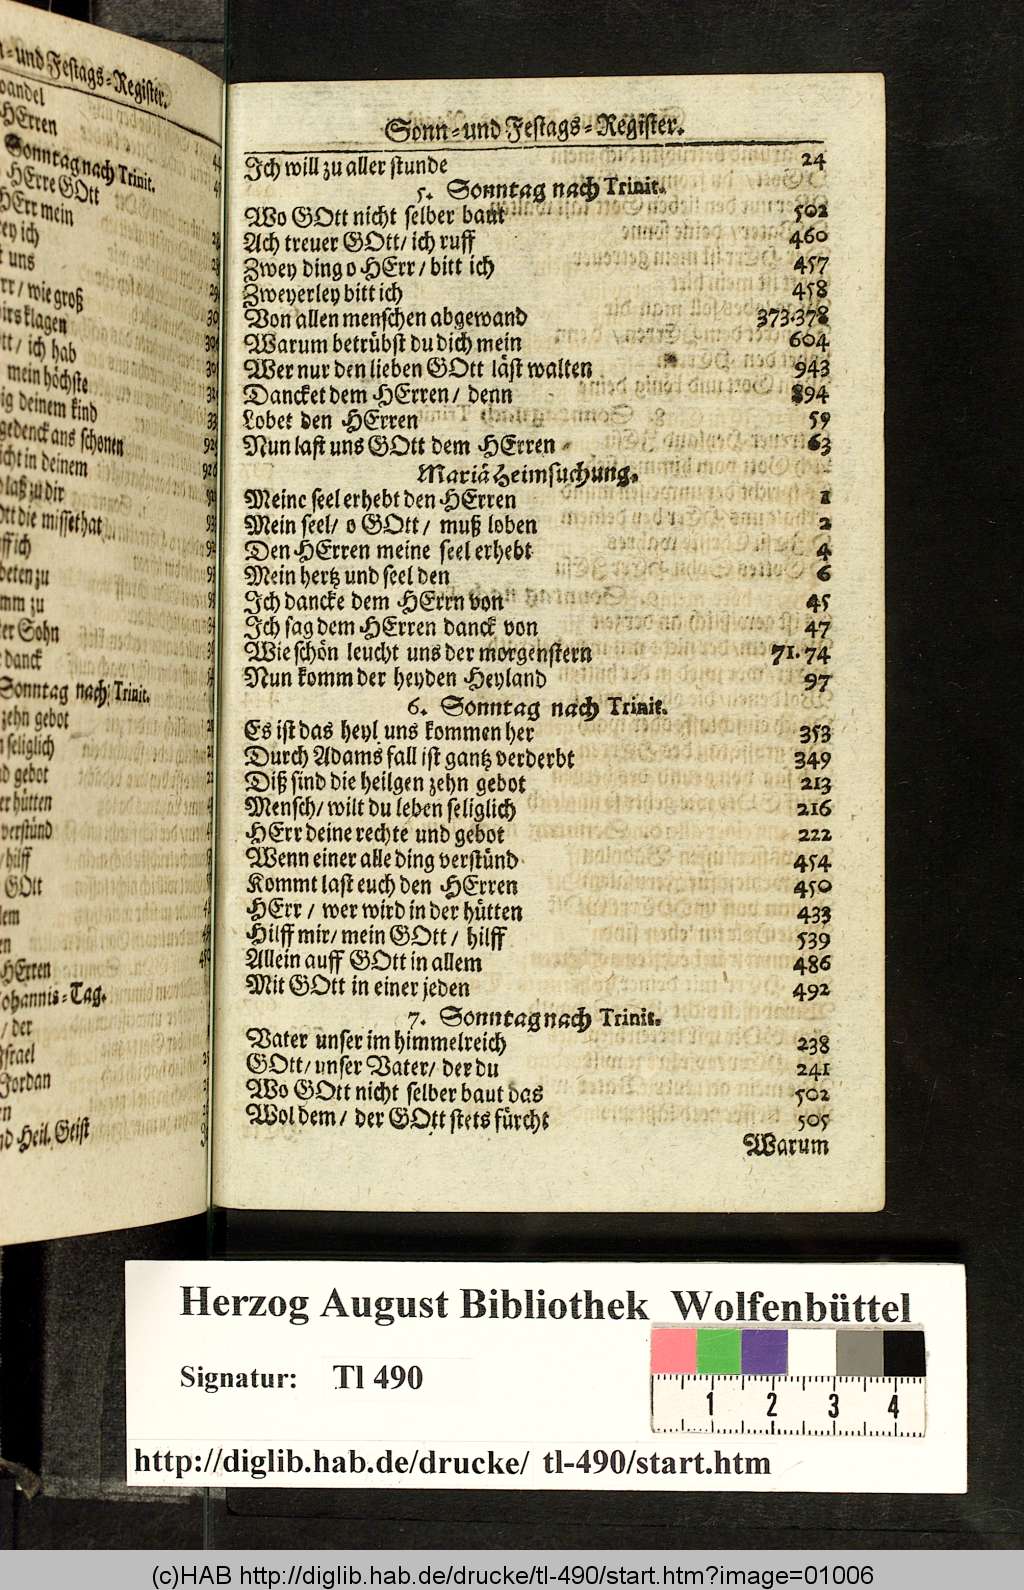 n-und Festags-Register.
wandel
HErren 44
Sonntag nach Trinit.
HErre GOtt
HErr mein
rey ich
t uns
rr/ wie groß
irs klagen
tt/ ich hab
mein höchste
ig deinem kind
gedenck ans schonen
icht in deinem
laß zu dir
Ott die missethat
ff ich
beten zu
mm zu
er Sohn
danck
Sonntag nach Trinit.
zehn gebot
n seliglich
nd gebot
er hütten
verstünd
/ hilff
GOtt
lem
en
HErren
Johannis-Tag.
/ der
Israel
Jordan
en
nd Heil. Geist
Sonn-und Festags-Register.
Ich will zu aller stunde 24
5. Sonntag nach Trinit.
Wo GOtt nicht selber baut 502
Ach treuer GOtt/ ich ruff 460
Zwey ding o HErr/ bitt ich 457
Zweyerley bitt ich 458
Von allen menschen abgewand 373.378
Warum betrübst du dich mein 604
Wer nur den lieben GOtt läst walten 943
Dancket dem HErren/ denn 894
Lobet den HErren 59
Nun last uns GOtt dem HErren 63
Mariä Heimsuchung.
Meine seel erhebt den HErren 1
Mein seel/ o GOtt/ muß loben 2
Den HErren meine seel erhebt 4
Mein hertz und seel den 6
Ich dancke dem HErrn von 45
Ich sag dem HErren danck von 47
Wie schön leucht uns der morgenstern 71.74
Nun komm der heyden Heyland 97
6. Sonntag nach Trinit.
Es ist das heyl uns kommen her 353
Durch Adams fall ist gantz verderbt 349
Diß sind die heilgen zehn gebot 213
Mensch/ wilt du leben seliglich 216
HErr deine rechte und gebot 222
Wenn einer alle ding verstünd 454
Kommt last euch den HErren 450
HErr/ wer wird in der hütten 433
Hilff mir/ mein GOtt/ hilff 539
Allein auff GOtt in allem 486
Mit GOtt in einer jeden 492
7. Sonntag nach Trinit.
Vater unser im himmelreich 238
GOtt/ unser Vater/ der du 241
Wo GOtt nicht selber baut das 502
Wol dem/ der GOtt stets fürcht 505
Warum
Herzog August Bibliothek Wolfenbüttel
Signatur: Tl 490
1 2 3 4
http://diglib.hab.de/drucke/ tl-490/start.htm
(c)HAB http://diglib.hab.de/drucke/tl-490/start.htm?image=01006